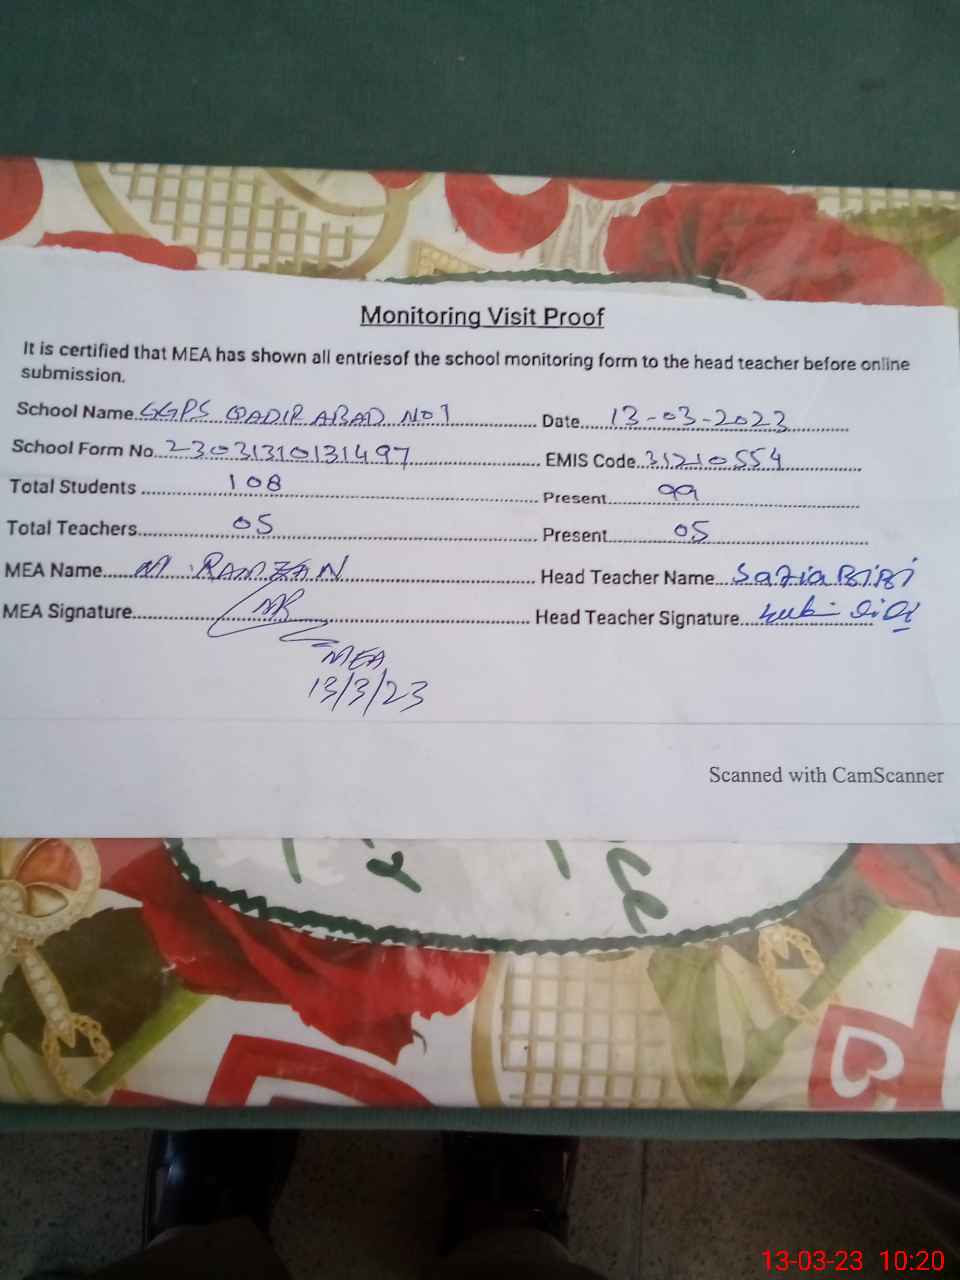 Monitoring Visit Proof
It is certified that MEA has shown all entriesof the school monitoring form to the head teacher before online
submission.
School Name GGPS QADIR ABAD NO 1 Date 13-03-2023
School Form No. 23031310131497 EMIS Code 31210554
Total Students 108 Present 99
Total Teachers 05 Present 05
MEA Name M. RAMZAN Head Teacher Name Sazia BiBi
MEA Signature Head Teacher Signature
MEA
13/3/23
Scanned with CamScanner
13-03-23 10:20